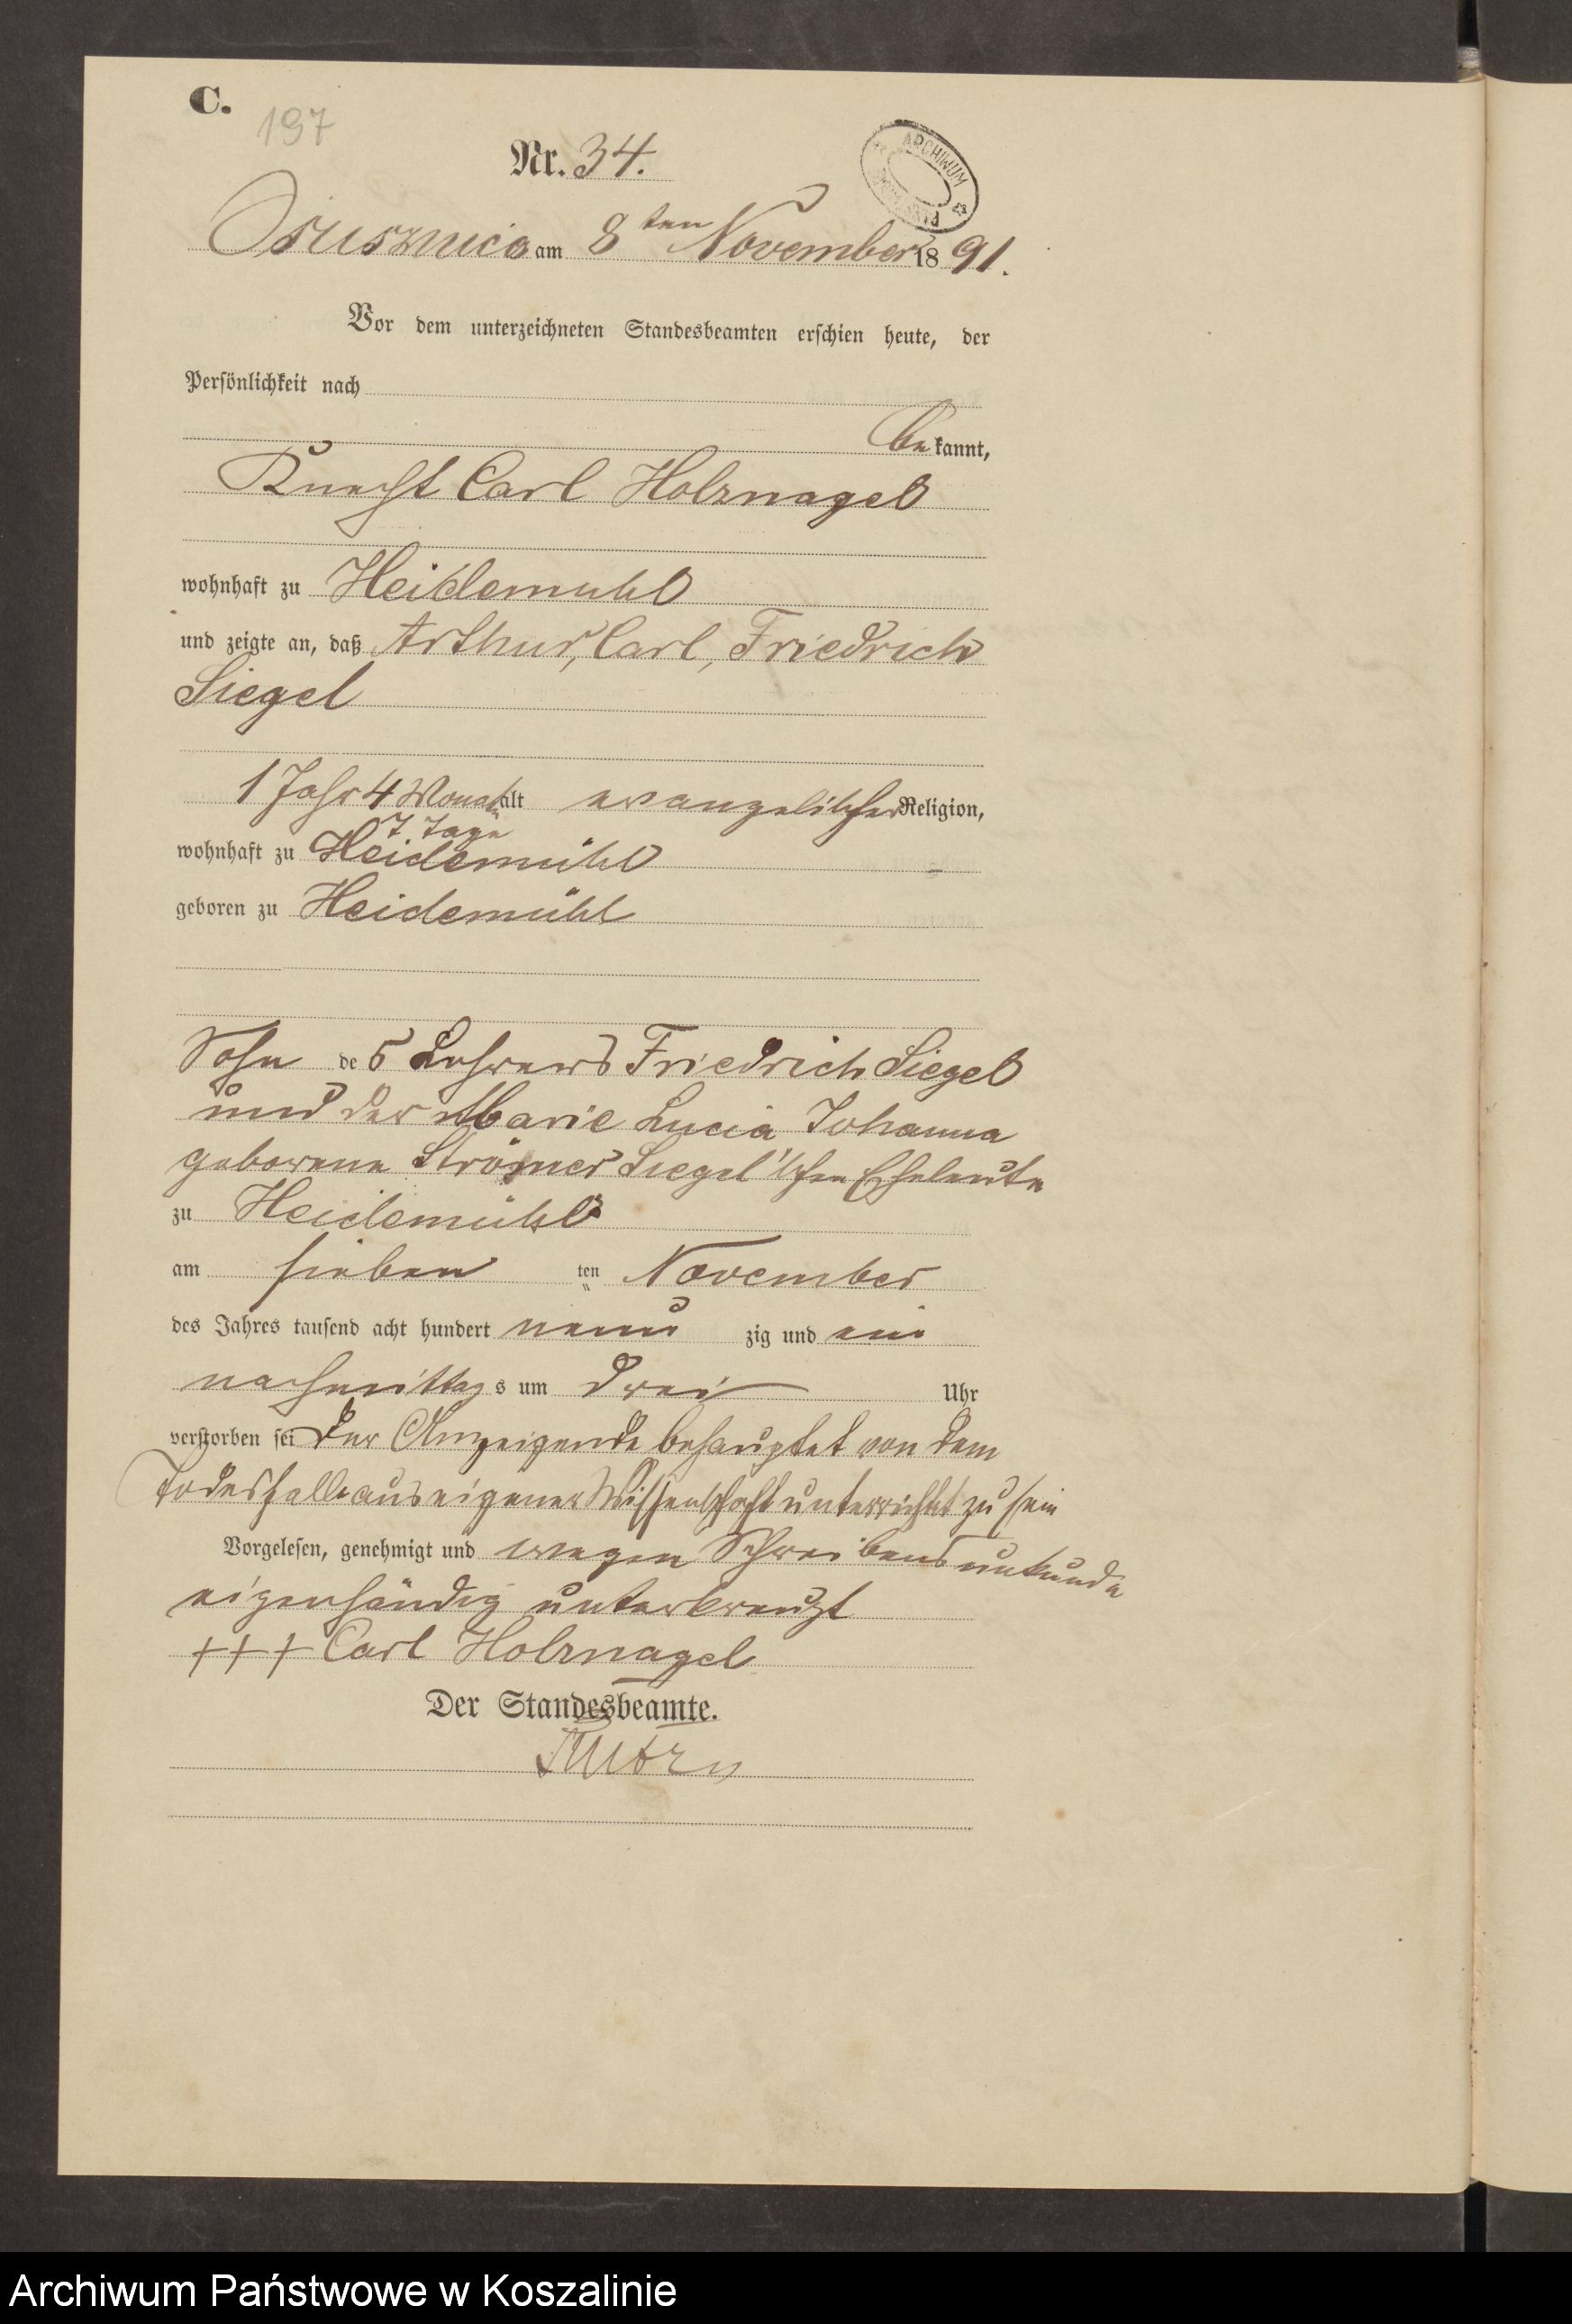 C.
197
Nr. 34.
ARCHIWUM
Osusznica am 8ten November 1891.
Vor dem unterzeichneten Standesbeamten erschien heute, der
Persönlichkeit nach
bekannt,
Knecht Carl Holznagel
wohnhaft zu Heidemuhl
und zeigte an, daß Arthur, Carl, Friedrich
Siegel
1 Jahr 4 Monat alt evangelischer Religion,
7 Tage
wohnhaft zu Heidemühl
geboren zu Heidemühl
Sohn des Lehrers Friedrich Siegel
und der Marie Lucia Johanna
geborene Strömer Siegel'schen Eheleute
zu Heidemühl
am sieben ten November
des Jahres tausend acht hundert neun zig und ein
nachmittags um drei Uhr
verstorben sei Der Anzeigende behauptet von dem
Todesfalle aus eigener Wissenschaft unterrichtet zu sein
Vorgelesen, genehmigt und wegen Schreibensunkunde
eigenhändig unterkreuzt
+++ Carl Holznagel
Der Standesbeamte.
Archiwum Państwowe w Koszalinie